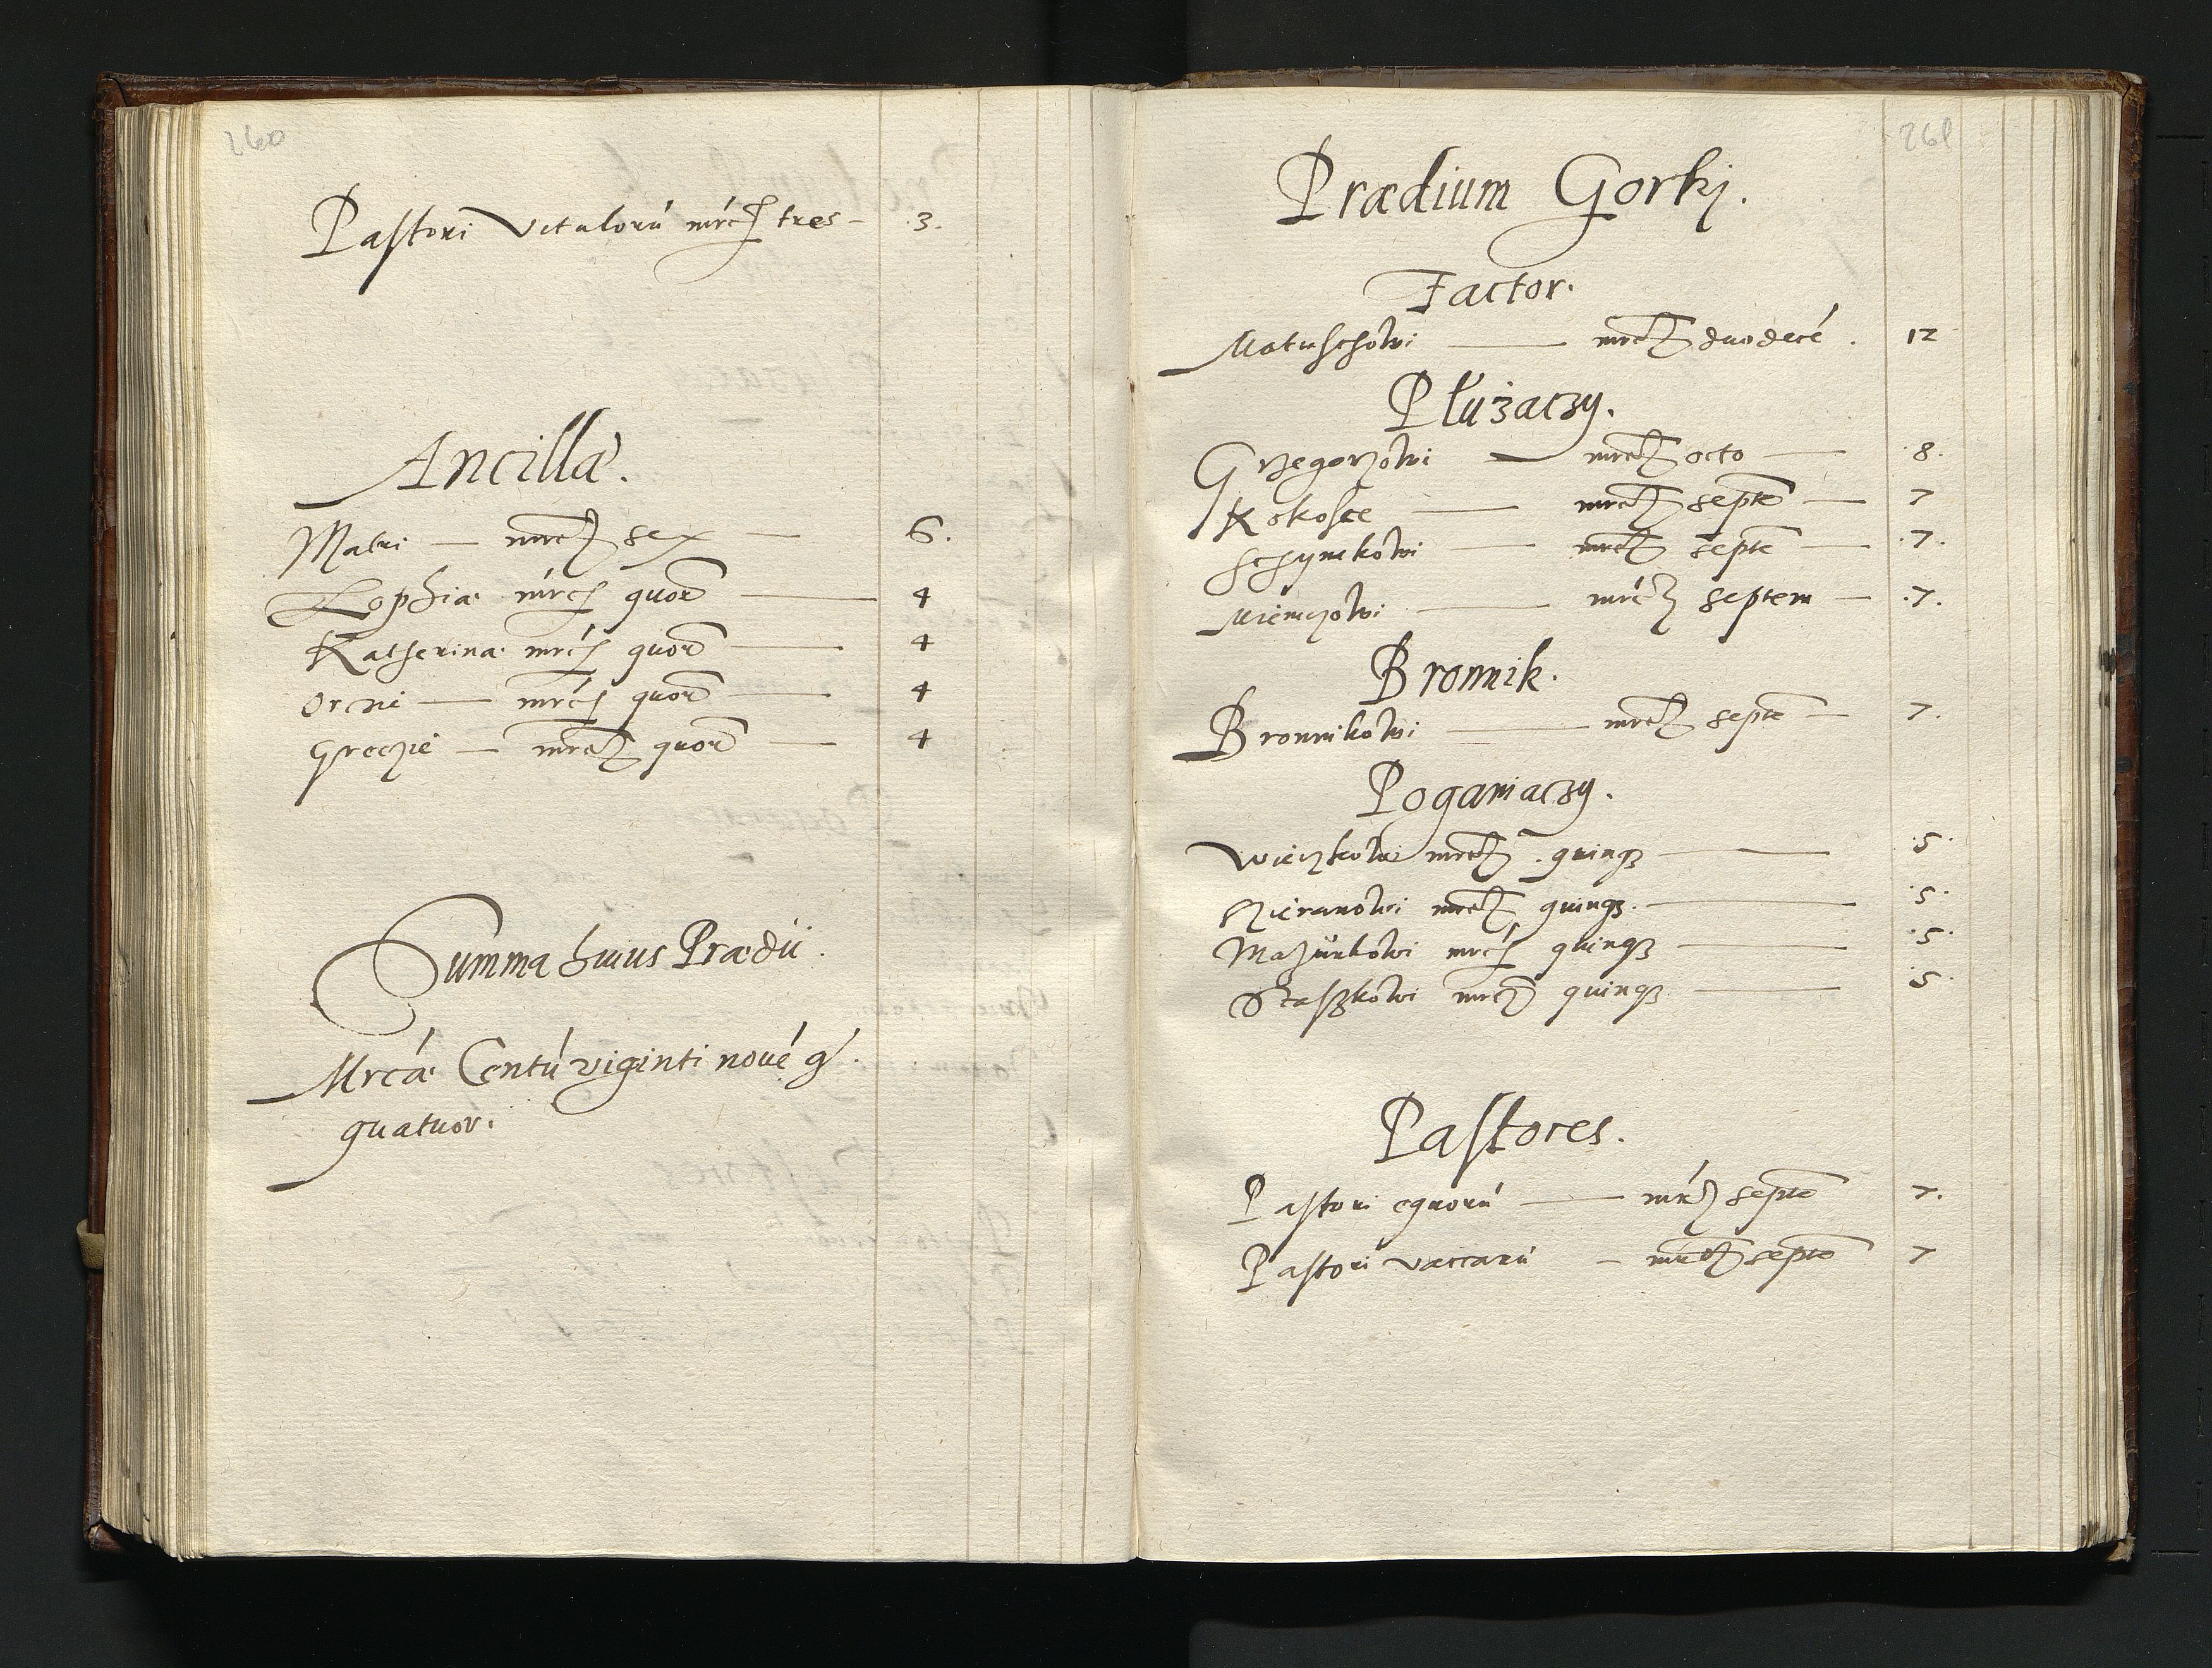 260
Pastori Vitulorú mrcas tres — 3.
Ancillæ.
Matri — mrcas sex — 6.
Zophiæ mrcas quor — 4
Katherinæ mrcas quor — 4
Orcni — mrcas quor — 4
Greczie — mrcas quor — 4
Summa huius Prædii.
Mrcæ Centú viginti noué g
quatuor.
261
Prædium Gorkj.
Factor.
Matuschowi — mrcas duodecé. 12
Płużaczy.
Grzegorzowi — mrcas octo — .8.
Kokosce — mrcas septē — 7
Schymkowi — mrcas septē — .7.
Niemczowi — mrcas septem — .7.
Bronnik.
Bronnikowi — mrcas septē — 7.
Poganiaczy.
Wieczkowi mrcas quinqȝ — .5.
mrcas quinqȝ. — .5.
Mazurkowi mrcas quinqȝ — .5.
Staszkowi mrcas quinqȝ — .5.
Pastores.
Pastori equorú — mrcas septē 7.
Pastori vaccarú — mrcas septē 7